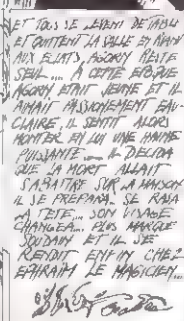 ET TOUS SE LEVENT DE TABLE
ET QUITTENT LA SALLE ET RIANT
AUX ECLATS, AGORN RESTE
SEUL... A CETTE EPOQUE
AGORN ETAIT JEUNE ET IL
AIMAIT PASSIONEMENT EAU-
CLAIRE, IL SENTIT ALORS
MONTER EN LUI UNE HAINE
PUISSANTE... IL DECIDA
QUE LA MORT ALLAIT
S'ABATTRE SUR LA MAISON
IL SE PREPARA. SE RASA
LA TETE... SON VISAGE
CHANGEA... PLUS MARQUE
SOUDAIN ET IL SE
RENDIT ENFIN CHEZ
EPHRAIM LE MAGICIEN...